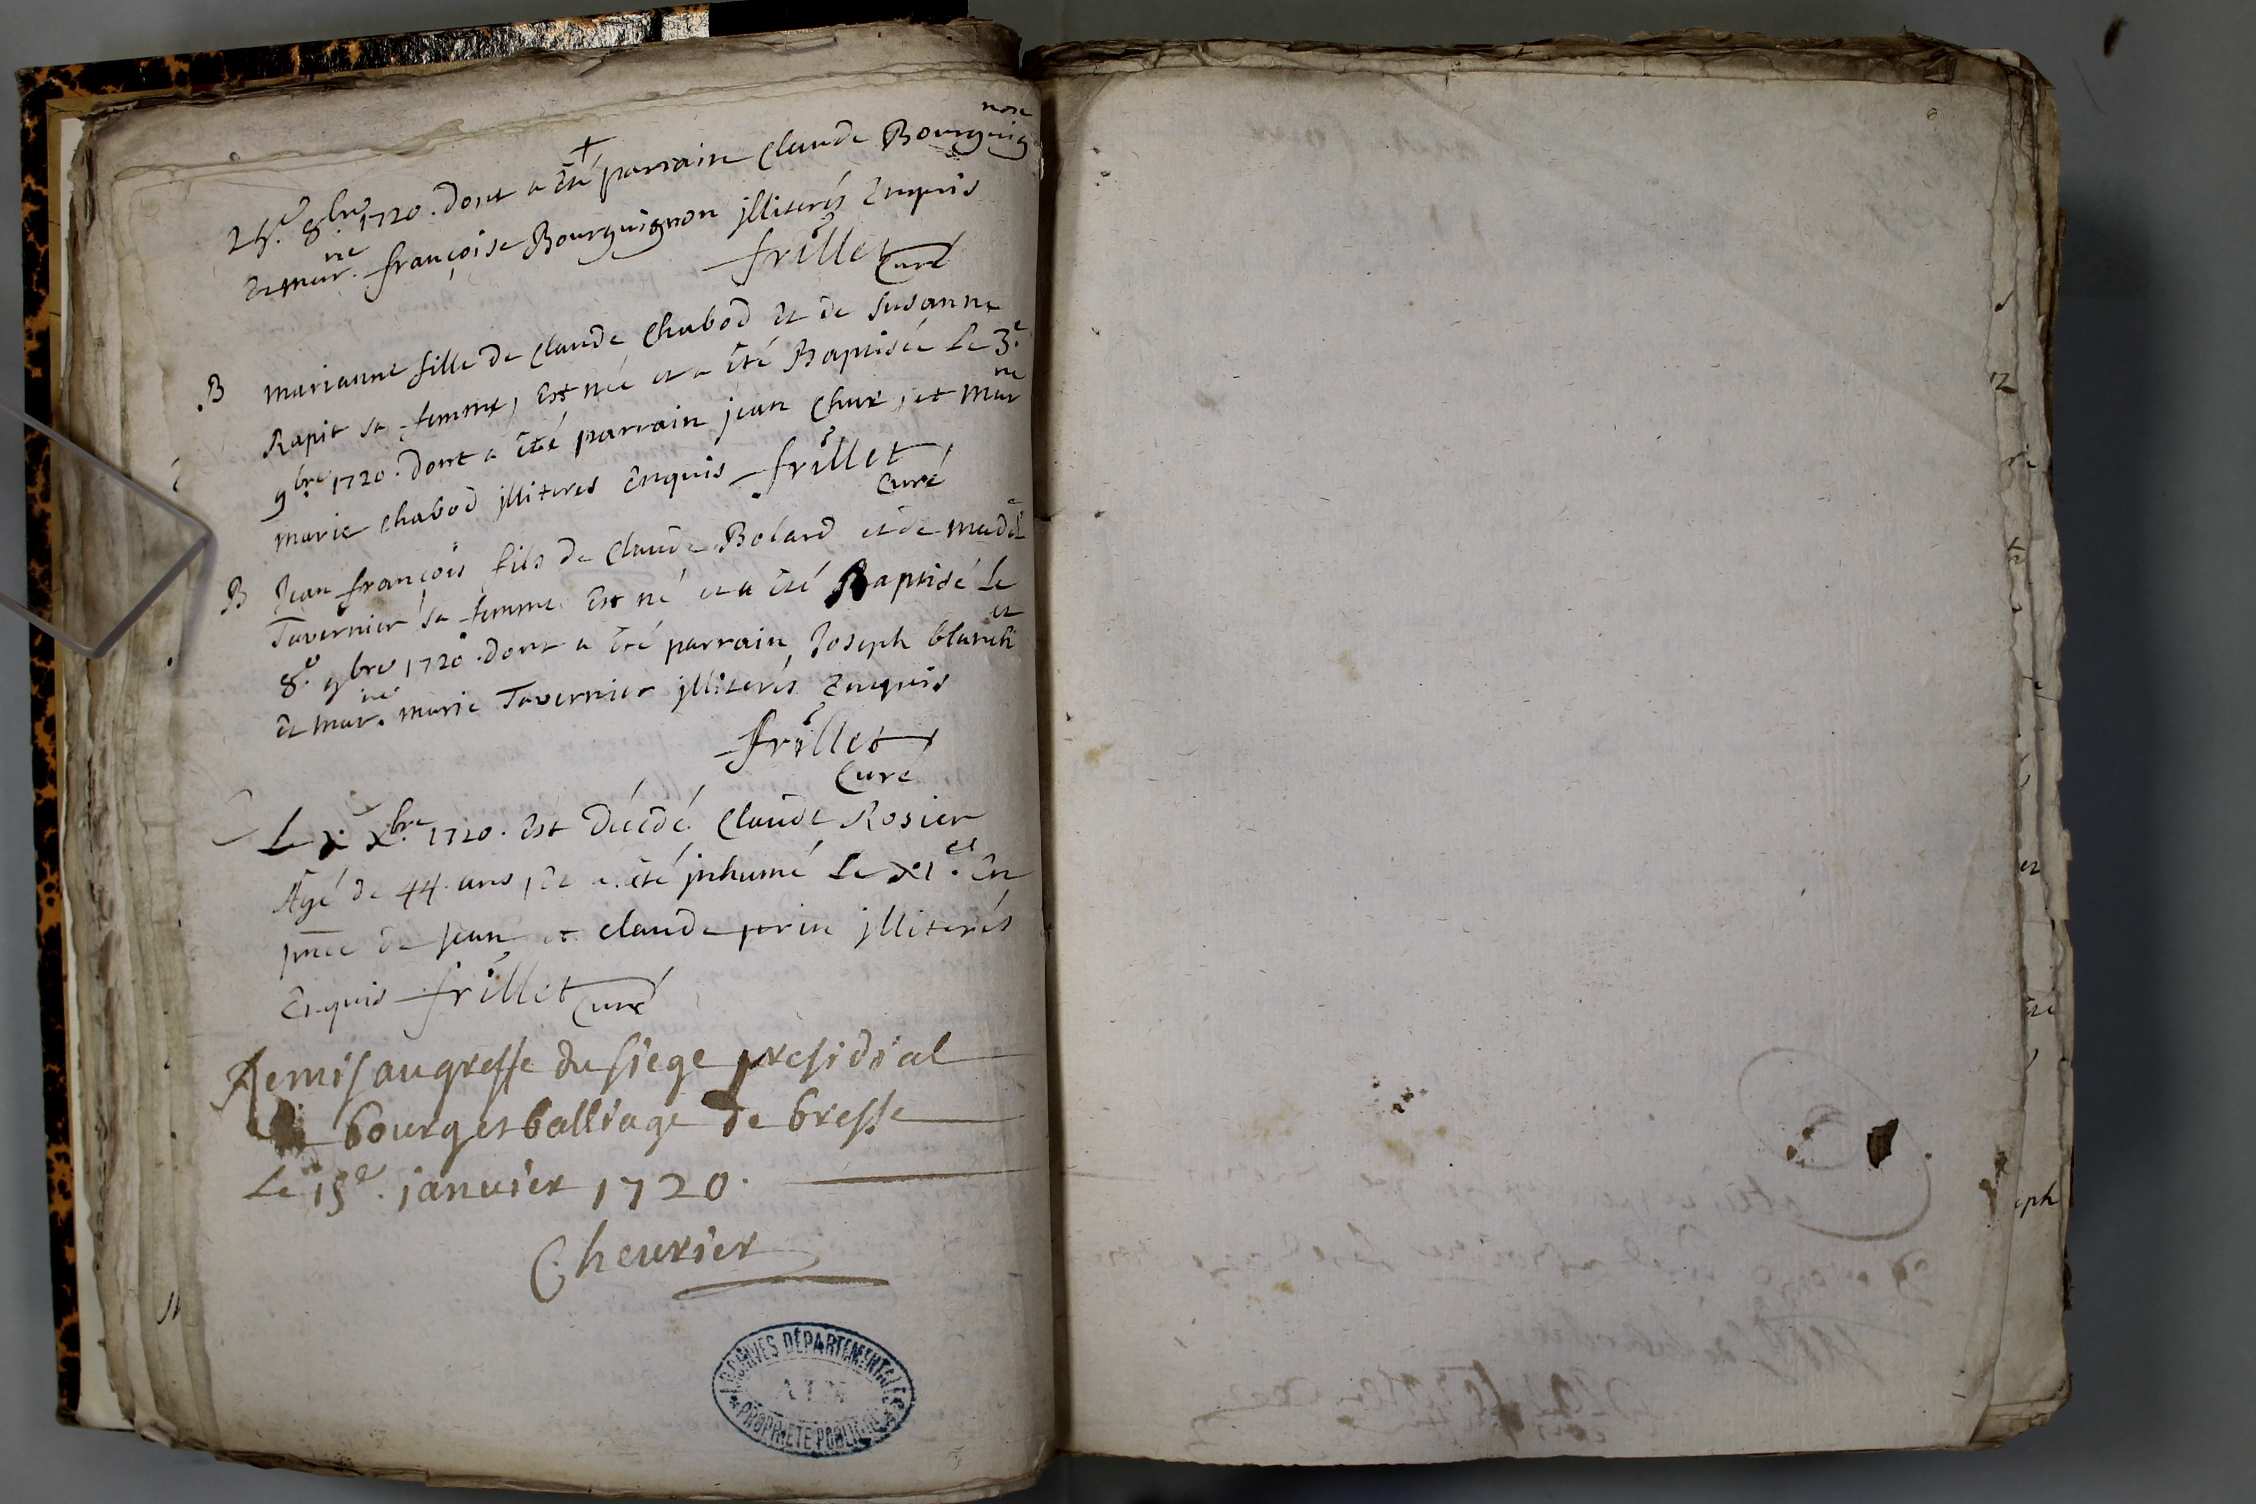 25.e 8.bre 1720. dont a été parrain Claude Bourguignon
et mar.ne françoise Bourguignon jlliterés Enquis
frillet Curé
B marianne fille de Claude Chabod et de Susanne
Rapit sa femme, Est née et a été Baptisée le 3.e
9.bre 1720. dont a été parrain jean Chur, et mar.ne
marie Chabod jlliteres Enquis frillet
Curé
B Jean françois fils de Claude Bolard et de mad.e
Tavernier sa femme Est né et a été Baptisé le
8.e 9bre 1720. dont a été parrain Joseph blanchet
et mar.ne marie Tavernier jlliterés Enquis
frillet
Curé
Le x.e X.bre 1720. Est décédé Claude Rosier
Agé de 44. ans, et a été jnhumé Le XI.e En
pnce de Jean et claude perin jlliterés
Enquis frillet Curé
Remis au greffe du siege presidial
bourg et balliage de bresse
Le 15e. janvier 1720.
Cheurier
ARCHIVES DÉPARTEMENTALES
AIN
PROPRIÉTÉ PUBLIQUE
eph